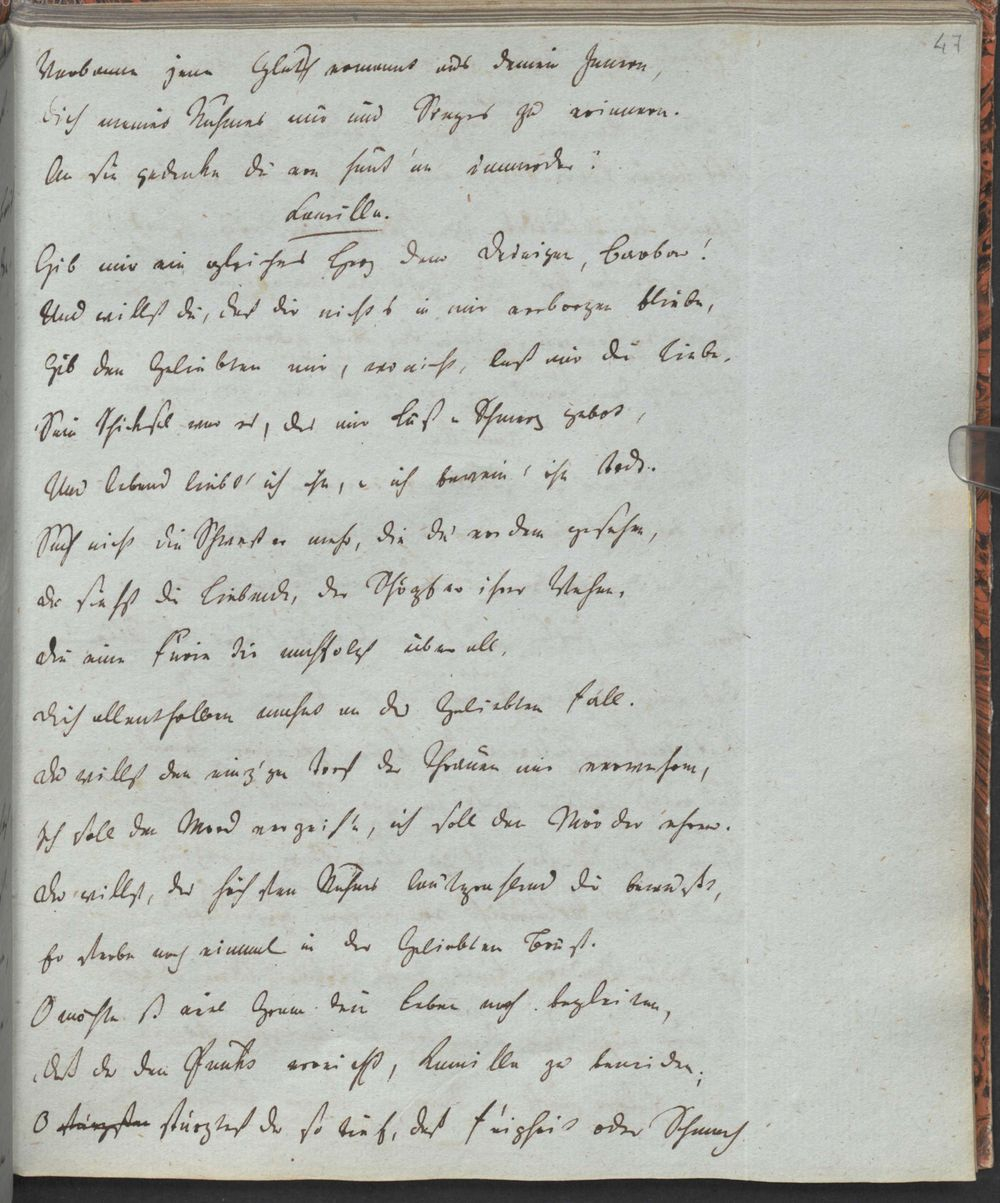 47
Verbanne jene Gluth ermannt aus deinem Innern,
Dich meines Ruhmes nur und Sieges zu erinnern.
An sie gedenke du von heut' an immerdar!
Kamilla.
Gib mir ein gleiches Herz dem deinigen, Barbar!
Und willst du, daß dir nichts in mir verborgen bliebe,
Gib den Geliebten mir, wo nicht, laß mir die Liebe.
Sein Schicksal war es, das mir Lust u Schmerz gebot,
Und lebend liebt' ich ihn, u ich bewein' ihn todt.
Such nicht die Schwester mehr, die du vordem gesehen,
du siehst die Liebende, der Schöpfer ihrer Wehen,
die eine Furie dir nachfolgt überall,
dich allenthalben mahnt an des Geliebten Fall.
du willst den einz'gen Trost der Thränen mir verwehren,
Ich soll den Mord verzeihn, ich soll den Mörder ehren.
du willst, des höchsten Ruhms lautprahlend dir bewußt,
Er sterbe noch einmal in der Geliebten Brust.
O möchte so viel Gram dein Leben noch begleiten,
daß du den Punkt erreichst, Kamilla zu beneiden;
O stürztest du so tief, daß Feigheit oder Schmach